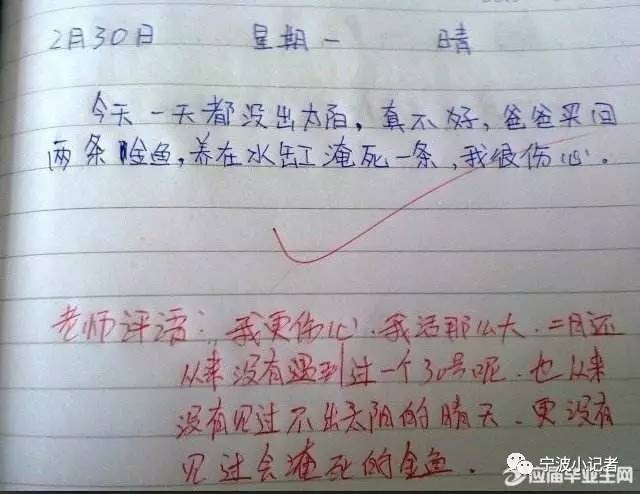 2月30日 星期一 晴
今天一天都没出太阳，真不好，爸爸买回
两条金鱼，养在水缸淹死一条，我很伤心。
老师评语：我更伤心．我活那么大．二月还
从来没有遇到过一个30号呢．也从来
没有见过不出太阳的晴天．更没有
见过会淹死的金鱼．
宁波小记者
应届毕业生网